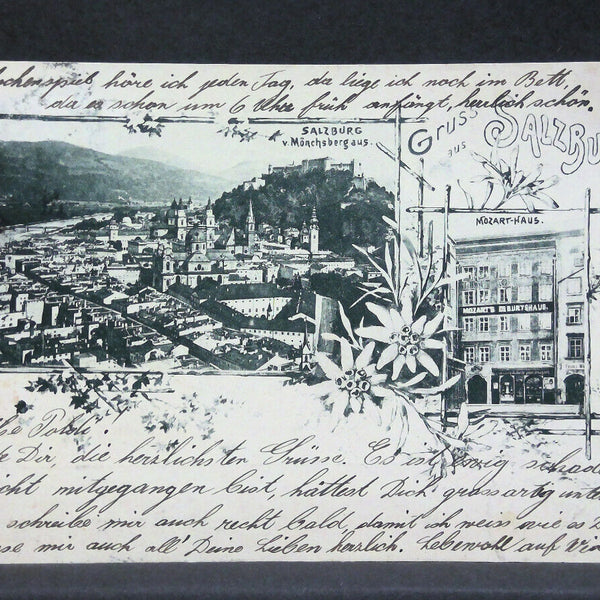 ockenspiel höre ich jeden Tag, da liege ich noch im Bett,
da es schon um 6 Uhr früh anfängt, herrlich schön.
SALZBURG
v. Mönchsberg aus.
Gruss
aus
SALZBU
MOZART-HAUS.
MOZART'S GEBURTSHAUS
Dir, die herzlichsten Grüsse. Es ist riesig schade
cht mitgegangen bist, hättest Dich grossartig unter
schreibe mir auch recht bald, damit ich weiss wie es D
se mir auch all' Deine Lieben herzlich. Lebewohl auf Wie